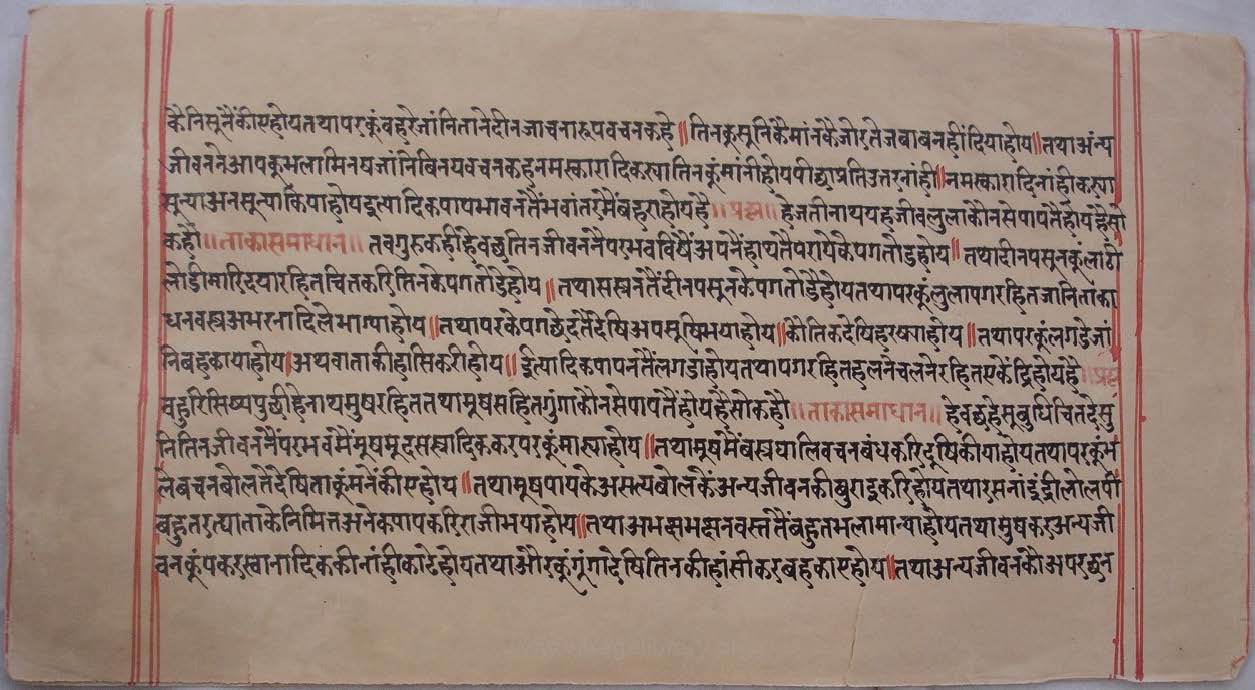 कैनिसूनैंकीएहोयतथापरकूंबहरेजांनितानेदीनजाचनारूपवचनकहे॥तिनकूसूनिकैमांनकैजोरतेजबाबनहींदियाहोय॥तथाअंन्य
जीवननेआपकूभलामिनषजांनिविनयवचनकहनमस्कारादिकस्यातिनकूंमांनीहोयपीछाप्रतिउतरनांही॥नमस्कारादिनांहीकस्या
सून्याअनसून्याकियाहोयइत्यादिकपापभावनतैंभवांतरमैंबहराहोयहै॥प्रश्न॥हेजतीनाथयहजीवलुलाकौनसेपापतैंहोयहैसो
कहौ॥ताकासमाधान॥तवगुरुकहीहेवछतिनजीवननैपरभवविषैंअपनैंहाथतैपरायेकेपगतोडेहोय॥तथादीनपसूनकूंलाठी
लोडीमारिदयारहितचितकरितिनकेपगतोडेहोय॥तथासस्त्रनतैंदीनपसूनकेपगतोडेहोयतथापरकूंलुलापगरहितजानिताका
धनवस्त्रअभरनादिलेभाग्याहोय॥तथापरकेपगछेदतेदेषिअपसूषिभयाहोय॥कौतिकदेषिहरष्याहोय॥तथापरकूंलगडेजां
निबहकायाहोय॥अथवाताकीहासिकरीहोय॥इत्यादिकपापनतैंलगडाहोयतथापगरहितहलनेचलनेरहितएकेंद्रिहोयहै॥प्रश्न
बहुरिसिष्यपुछीहेनाथमुषरहिततथामूषसहितगुंगाकौनसेपापतैंहोयहैसोकहौ॥ताकासमाधान॥हेवछहेसूबुधिचितदेसु
नितिनजीवननैंपरभवमैंमूषमूदसस्त्रादिककरपरकूंमास्याहोय॥तथामूषमेंवस्त्रघालिवचनबंधकरिदूषिकीयाहोयतथापरकूंभ
लेबचनबोलतेदेषिताकूंमनेंकीएहोय॥तथामूषपापकेअसत्यबोलकैंअन्यजीवनकीबुराइकरिहोयतथारसनांइंद्रीलोलपी
बहुतरत्याताकेनिमितअनेकपापकरिराजीभयाहोय॥तथाअभक्षभक्षनवस्ततैंबहुतभलामान्याहोयतथामुषकरअन्यजी
वनकूंपकरस्वानादिककीनांहीकाटेहोयतथाऔरकूंगूंगादेषितिनकीहांसीकरबहकाएहोय॥तथाअन्यजीवनकौअपरछन